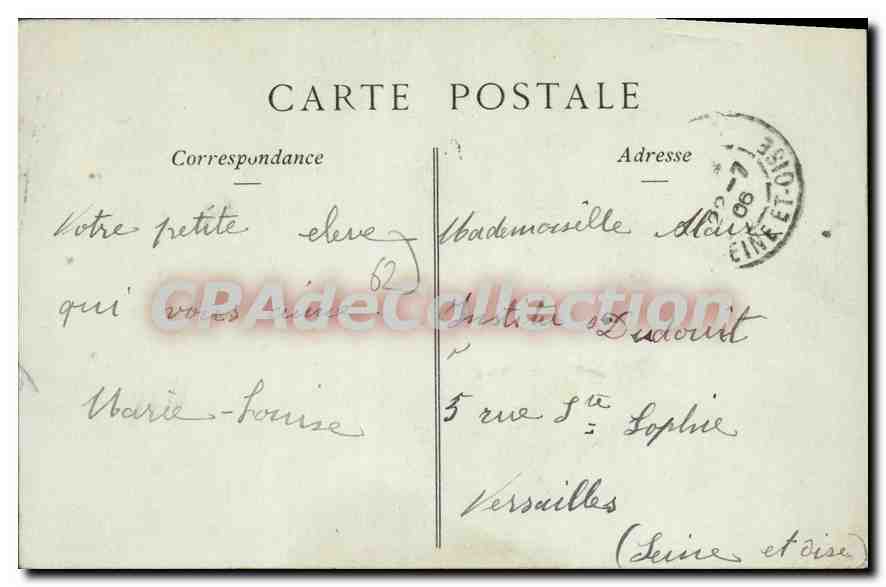 CARTE POSTALE
Correspondance
Votre petite eleve
qui vous aime.
Marie-Louise
62
Adresse
Mademoiselle
Institut Dudouit
5 rue Ste Sophie
Versailles
(Seine et Oise)
22-7
06
EINE-ET-OISE
CPAdeCollection